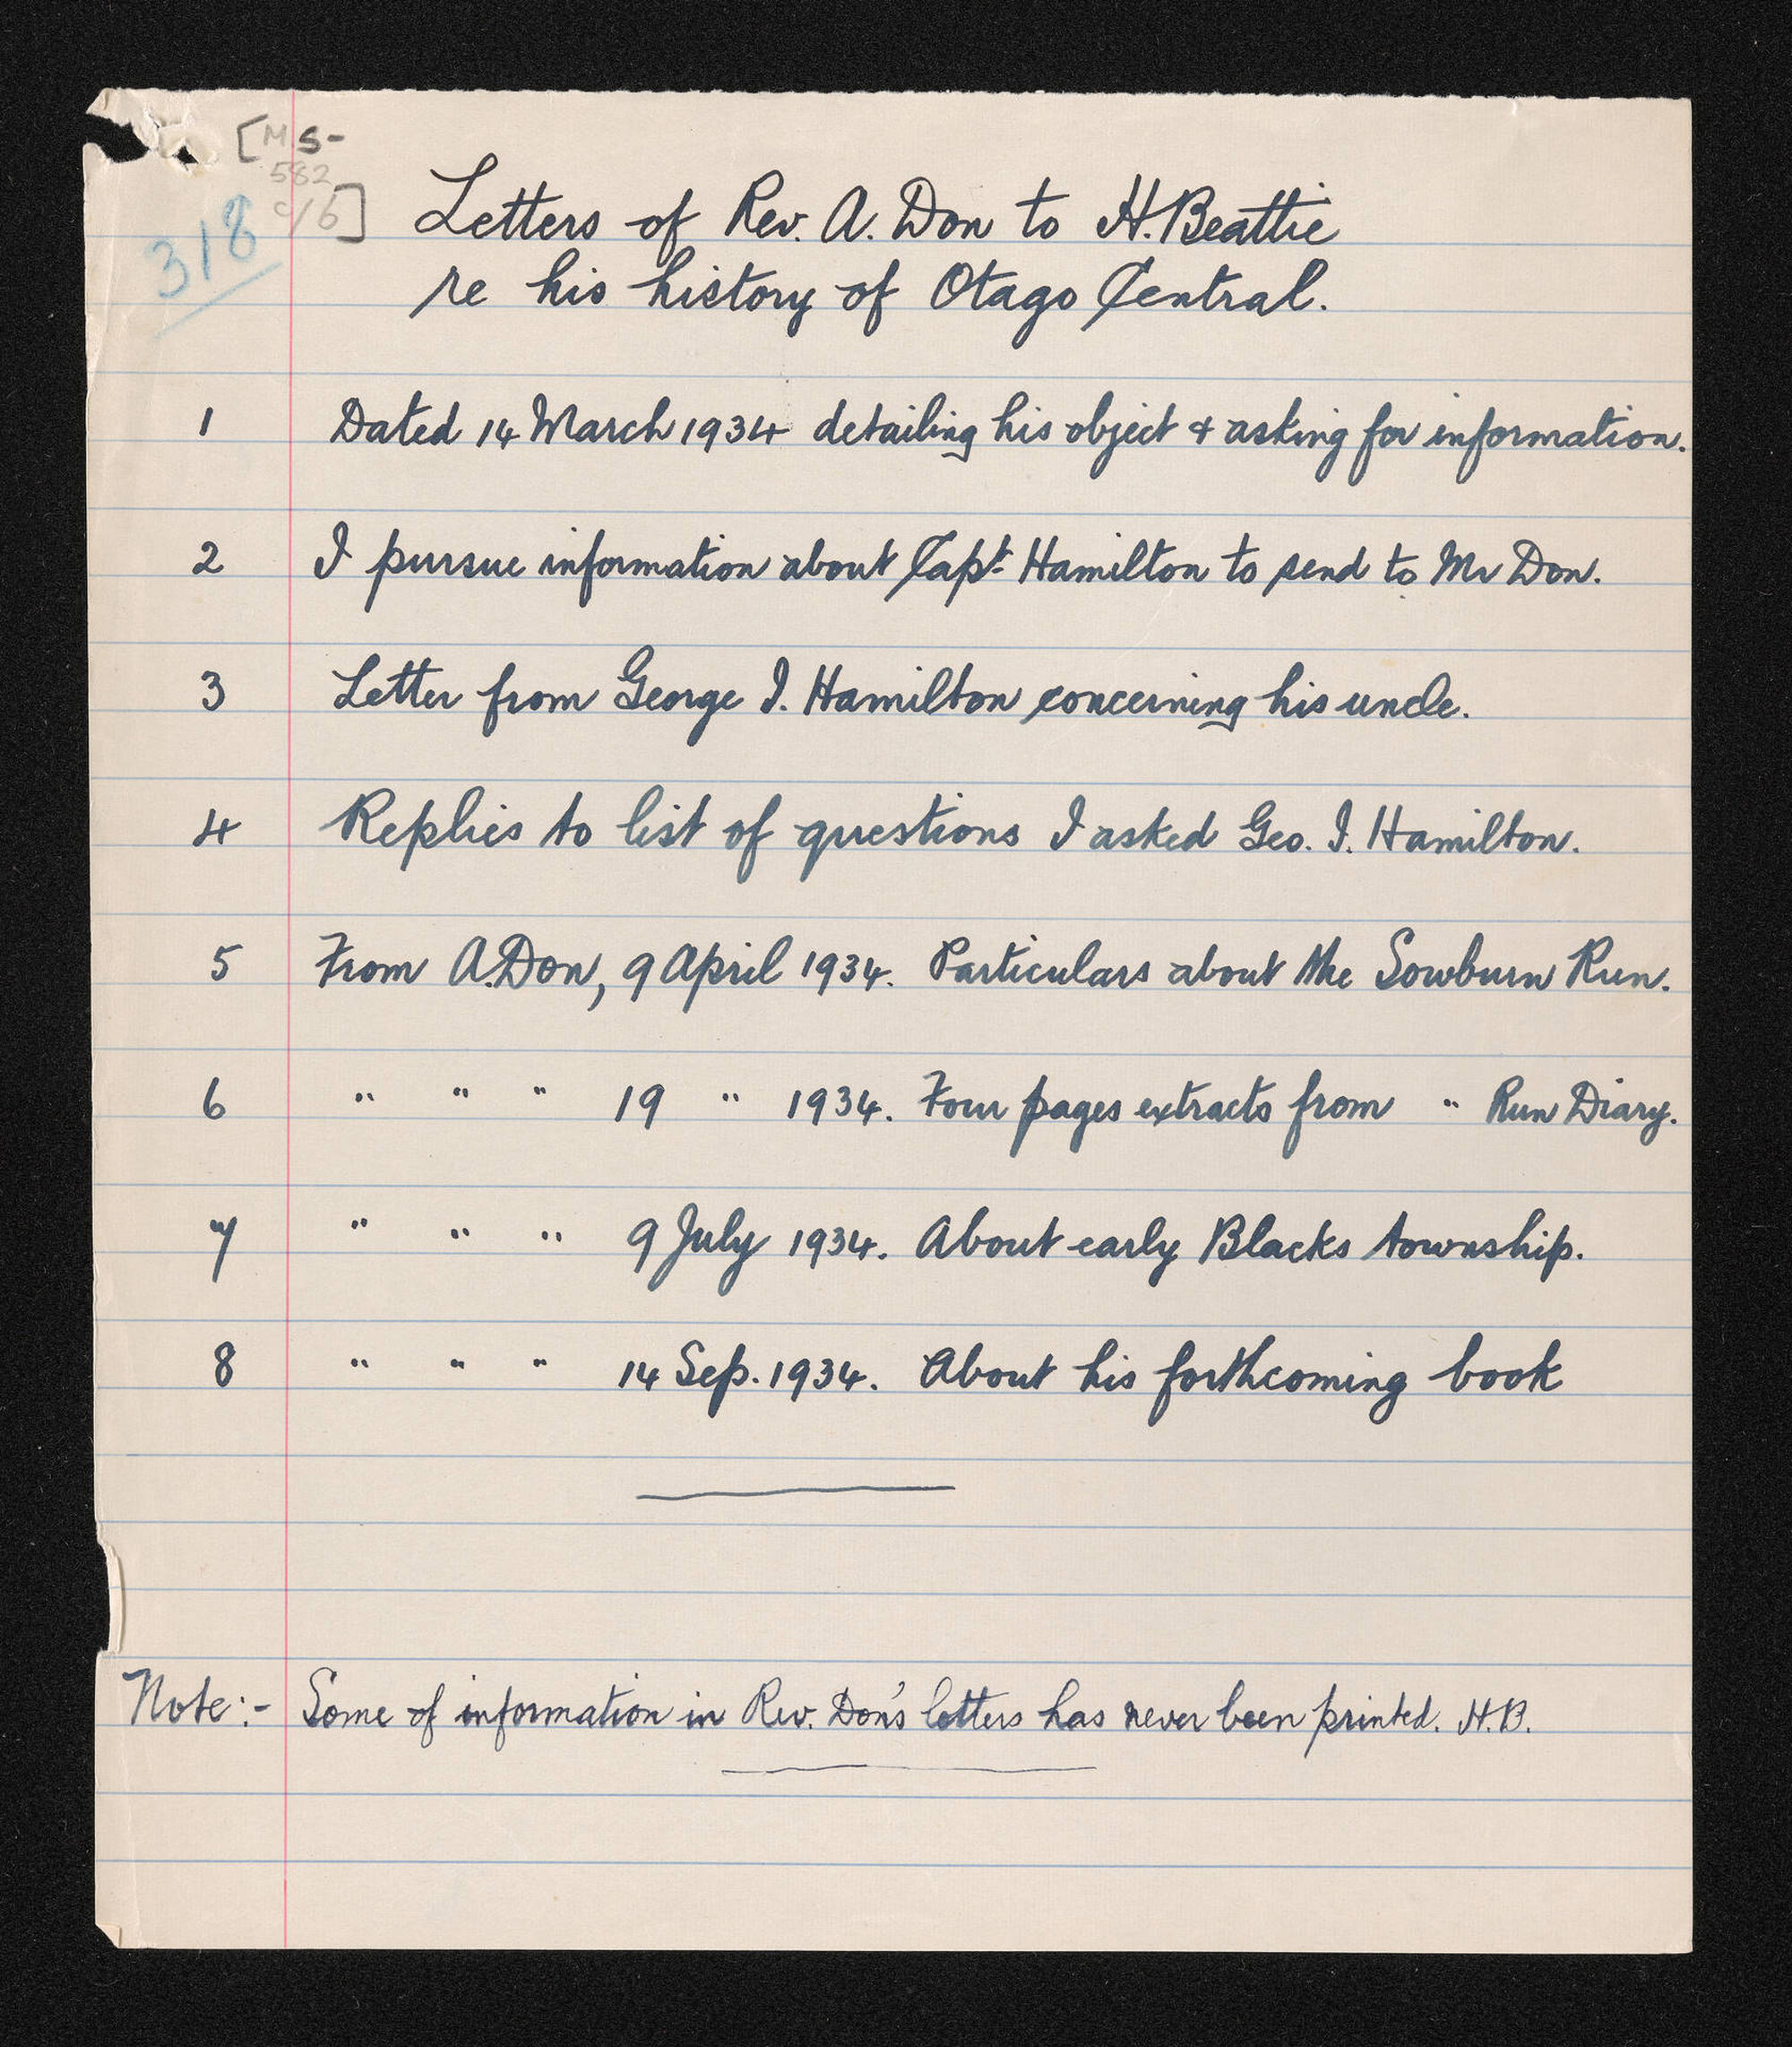 [MS-
582
c/6]
318
Letters of Rev. A. Don to H. Beattie
re his history of Otago Central.
1 Dated 14 March 1934 detailing his object & asking for information.
2 I pursue information about Capt. Hamilton to send to Mr Don.
3 Letter from George I. Hamilton concerning his uncle.
4 Replies to list of questions I asked Geo. I. Hamilton.
5 From A. Don, 9 April 1934. Particulars about the Sowburn Run.
6 " " " 19 " 1934. Four pages extracts from " Run Diary.
7 " " " 9 July 1934. About early Blacks township.
8 " " " 14 Sep. 1934. About his forthcoming book
Note:- Some of information in Rev. Don's letters has never been printed. H.B.